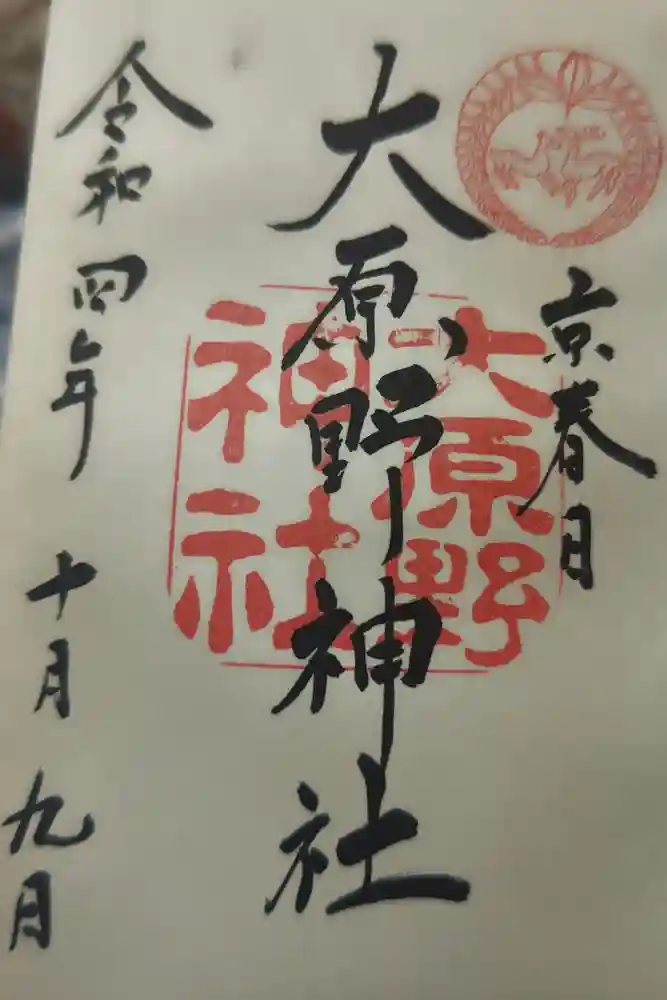 京春日
大原野神社
大原野
神社
令和四年 十月 九日